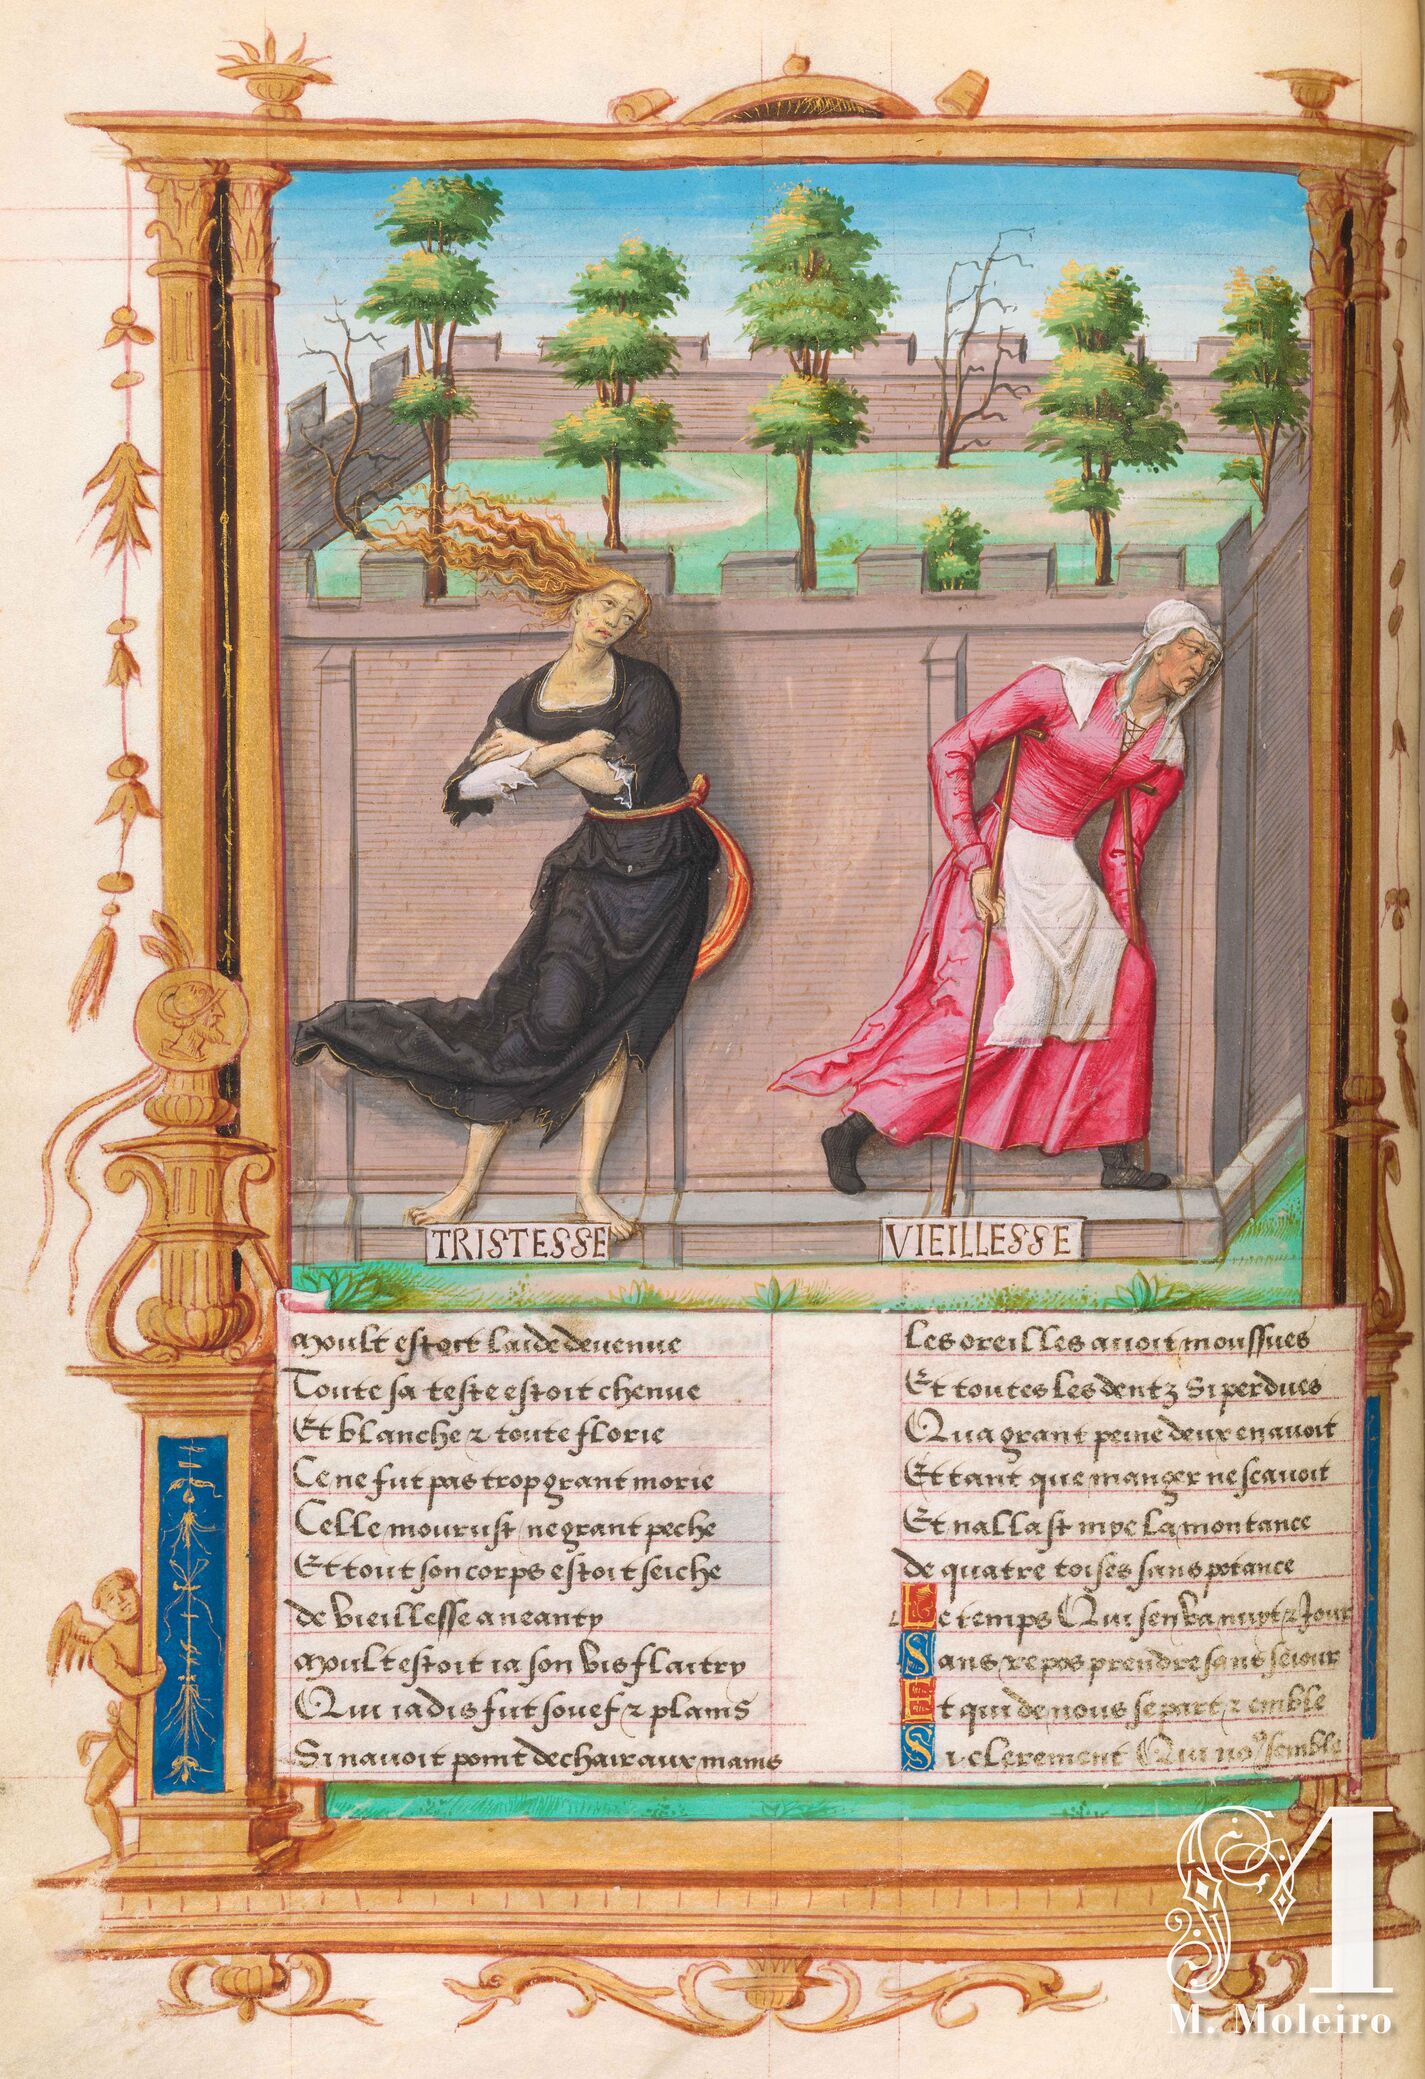 TRISTESSE
VIEILLESSE
Moult estoit laide devenue
Toute sa teste estoit chenue
Et blanche & toute florie
Ce ne fut pas trop grant morie
Celle mourust ne grant peche
Et tout son corps estoit seiche
de vieillesse aneanty
Moult estoit ia son vis flaitry
Qui iadis fut souef & plains
Si navoit point de chair aux mains
Les oreilles avoit moussues
Et toutes les dentz si perdues
Qua grant peine deux en avoit
Et tant que manger ne scavoit
Et nallast mye la montance
de quatre toises sans potance
Le temps Qui sen va nuyt & Jour
Sans repos prendre sans seiour
Et qui de nous se part & emble
Si celerement Qui no9 semble
M
M. Moleiro